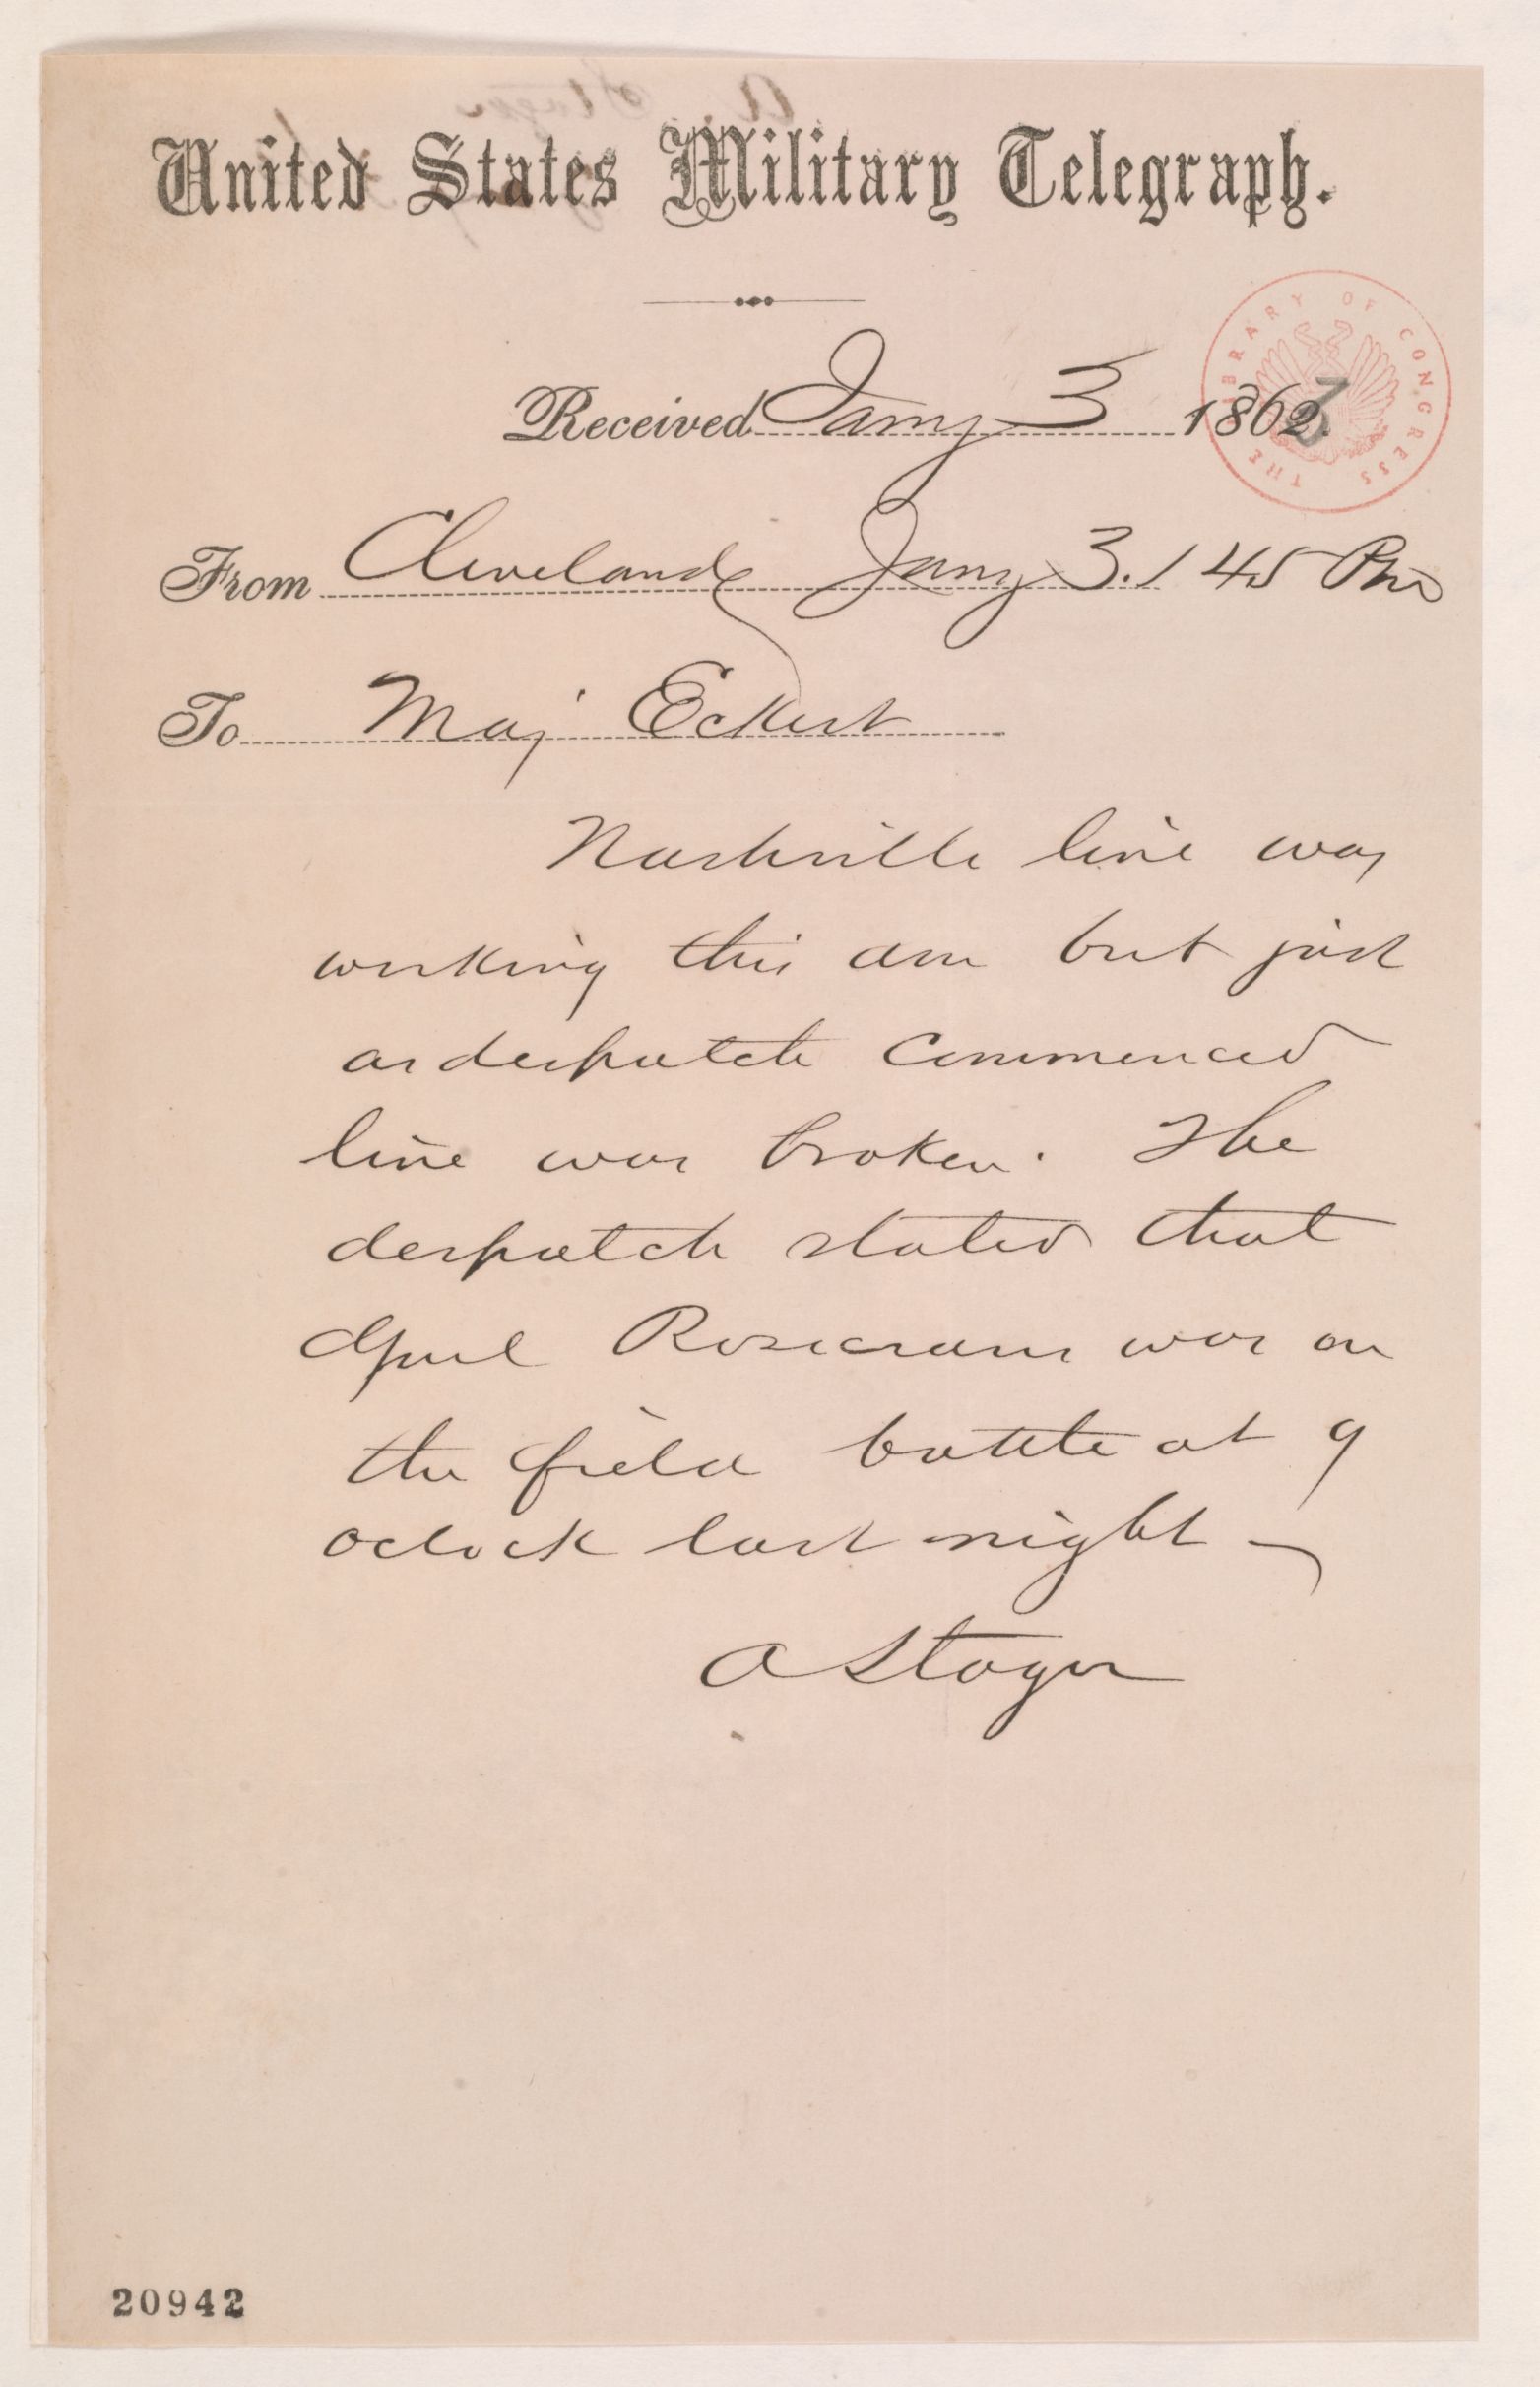 United States Military Telegraph.
Received Jany 3 1863.
From Cleveland Jany 3. 1 45 Pm
To Maj Eckert
Nashville line was
working this am but just
as despatch commenced
line was broken. The
despatch stated that
Genl Rosecrans was on
the field battle at 9
oclock last night —
A Stager
THE LIBRARY OF CONGRESS
20942